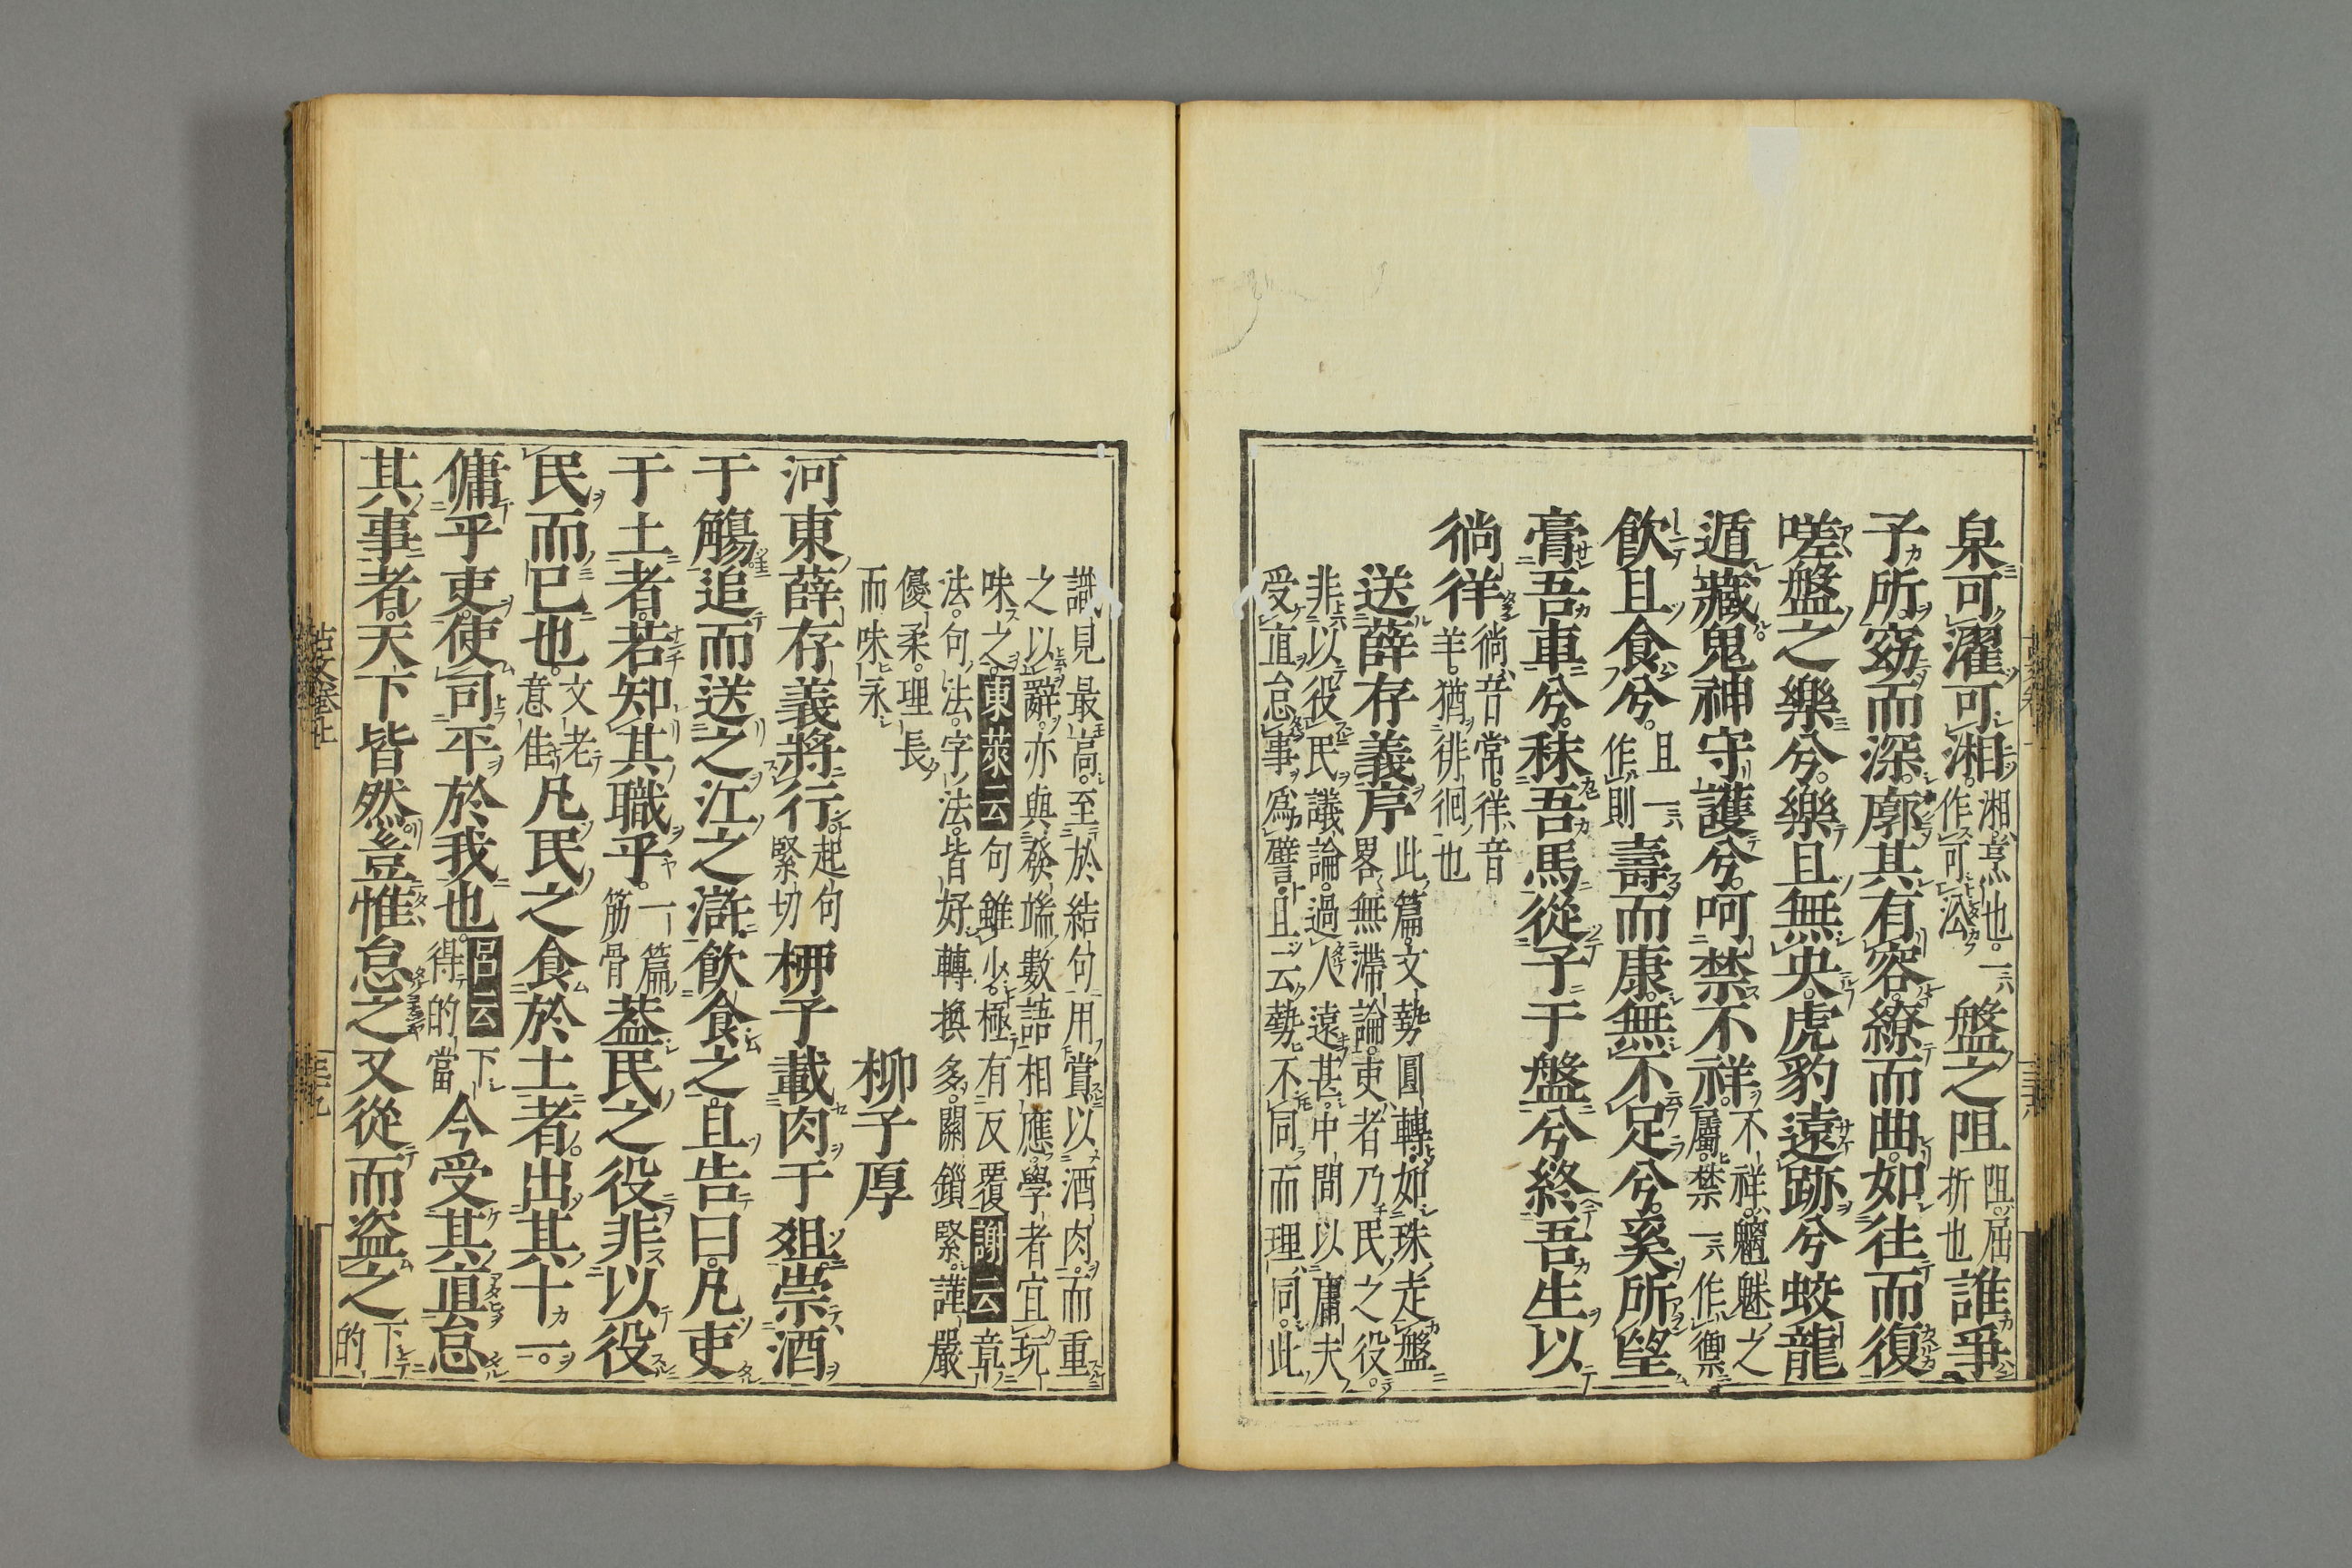 泉可濯可湘湘烹也一作可㳂盤之阻阻屈折也誰爭
子所窈而深廓其有容繚而曲如往而復
嗟盤之樂兮樂且無央虎豹遠跡兮蛟龍
遁藏鬼神守護兮呵禁不祥不祥魑魅之屬禁一作禦
飲且食兮且一作則壽而康無不足兮奚所望
膏吾車兮秣吾馬從子于盤兮終吾生以
徜徉徜音常徉音羊猶徘徊也
送薛存義序此篇文勢圓轉如珠走盤畧無滯論吏者乃民之役
非以役民議論過人遠甚中間以庸夫
受直怠事爲譬且云勢不同而理同此
識見最高至於結句用賞以酒肉而重
之以辭亦與發端數語相應學者宜玩
味之東萊云句雖少極有反覆謝云章
法句法字法皆好轉換多關鎖緊謹嚴
優柔理長
而味永
柳子厚
河東薛存義將行起句緊切柳子載肉于俎崇酒
于觴追而送之江之滸飲食之且告曰凡吏
于土者若知其職乎一篇筋骨蓋民之役非以役
民而已也文老意佳凡民之食於土者出其十一
傭乎吏使司平於我也呂云下得的當今受其直怠
其事者天下皆然豈惟怠之又從而盜之下的
古文卷上
三九